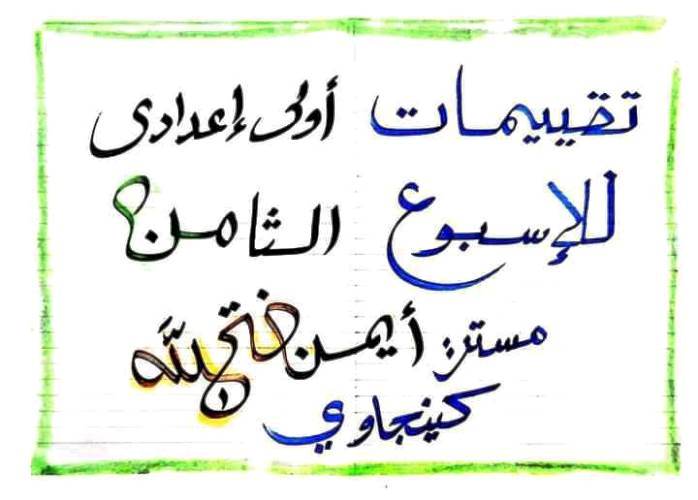 تقييمات أولى إعدادى
للإسبوع الثامن
مستر: أيمن فتح الله
كينجاوي